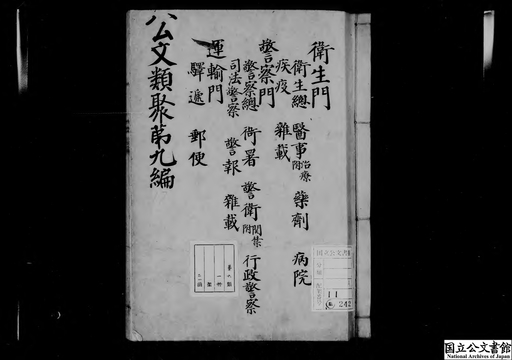 衛生門
衛生總 醫事附治療 藥劑 病院
疾疫 雜載
警察門
警察總 衙署 警衛附門禁 行政警察
司法警察 警報 雜載
運輸門
驛遞 郵便
公文類聚第九編
国立公文書館
11
242
国立公文書館
National Archives of Japan